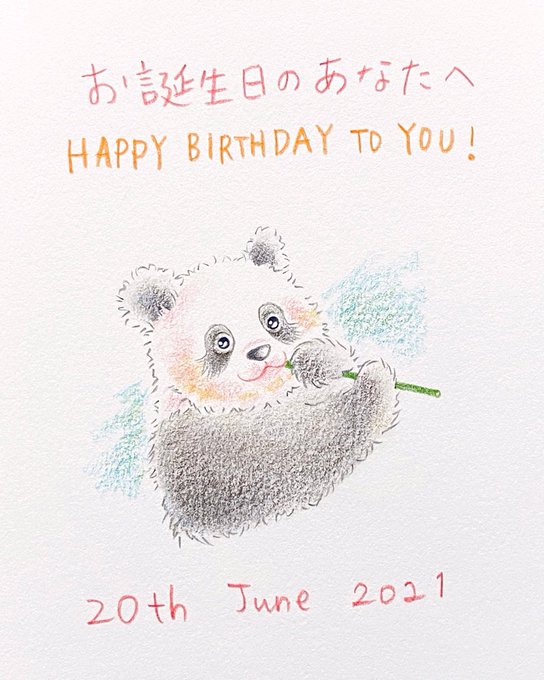 お誕生日のあなたへ
HAPPY BIRTHDAY TO YOU!
20th June 2021